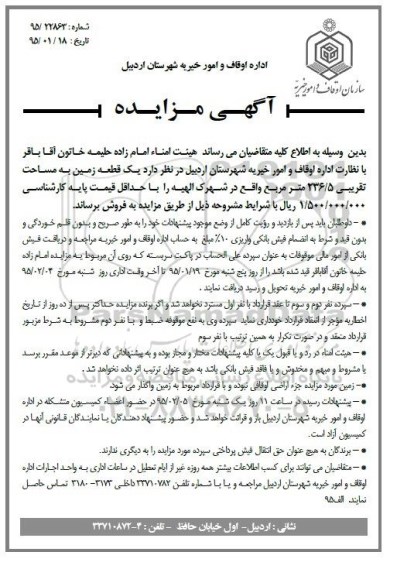 شماره : ۹۵/۲۲۸۶۳
تاریخ : ۹۵/۰۱/۱۸
سازمان اوقاف و امور خیریه
اداره اوقاف و امور خیریه شهرستان اردبیل
آگهی مزایده
بدین وسیله به اطلاع کلیه متقاضیان می رساند هیئت امناء امام زاده حلیمه خاتون آقا باقر
با نظارت اداره اوقاف و امور خیریه شهرستان اردبیل در نظر دارد یک قطعه زمین به مساحت
تقریبی ۲۳۶/۵ متر مربع واقع در شهرک الهیه را با حداقل قیمت پایه کارشناسی
۱/۵۰۰/۰۰۰/۰۰۰ ریال با شرایط مشروحه ذیل از طریق مزایده به فروش برساند.
– داوطلبان باید پس از بازدید و رؤیت کامل از وضع موجود پیشنهادات خود را به طور صریح و بدون قلم خوردگی و
بدون قید و شرط به انضمام فیش بانکی واریزی ۱۰٪ مبلغ به حساب اداره اوقاف و امور خیریه مراجعه و دریافت فیش
بانکی از امور مالی موقوفات به عنوان سپرده علی الحساب در پاکت سربسته که روی آن مربوط به مزایده امام زاده
حلیمه خاتون آقاباقر قید شده باشد را از روز پنج شنبه مورخ ۹۵/۰۱/۱۹ تا آخر وقت اداری روز شنبه مورخ ۹۵/۰۲/۰۴
به اداره اوقاف و امور خیریه تحویل و رسید دریافت نمایند .
– سپرده نفر دوم و سوم تا عقد قرارداد با نفر اول مسترد نخواهد شد و اگر برنده مزایده حداکثر پس از ده روز از تاریخ
اخطاریه مؤجر از انعقاد قرارداد خودداری نماید سپرده وی به نفع موقوفه ضبط و با نفر دوم مشروط به شرط مزبور
قرارداد منعقد و در صورت تکرار به همین ترتیب با نفر سوم
– هیئت امناء در رد و یا قبول یک یا کلیه پیشنهادات مختار و مجاز بوده و به پیشنهاداتی که دیرتر از موعد مقرر برسد
یا مشروط و مبهم و مخدوش و یا فاقد فیش بانکی باشد به هیچ عنوان ترتیب اثر داده نخواهد شد .
– زمین مورد مزایده جزء اراضی اوقافی نبوده و با قرارداد مربوط به زمین واگذار می شود.
– پیشنهادات رسیده در ساعت ۱۱ روز یک شنبه مورخ ۹۵/۰۲/۰۵ در حضور اعضاء کمیسیون متشکله در اداره
اوقاف و امور خیریه شهرستان اردبیل باز و قرائت خواهد شد و حضور پیشنهاد دهندگان یا نمایندگان قانونی آنها در
کمیسیون آزاد است.
– برندگان به هیچ عنوان حق انتقال فیش پرداختی سپرده مورد مزایده را به دیگری ندارند.
– متقاضیان می توانند برای کسب اطلاعات بیشتر همه روزه غیر از ایام تعطیل در ساعات اداری به واحد اجارات اداره
اوقاف و امور خیریه شهرستان اردبیل مراجعه و یا با شماره تلفن ۳۳۷۱۰۷۸۲ داخلی ۳۱۷۳- ۳۱۸۰ تماس حاصل
نمایند. الف۹۵
نشانی : اردبیل- اول خیابان حافظ - تلفن : ۴-۳۳۷۱۰۸۷۲